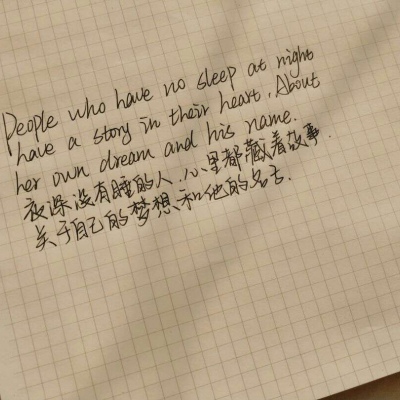 People who have no sleep at night
have a story in their heart, About
her own dream and his name.
夜深没有睡的人.心里都藏着故事.
关于自己的梦想和他的名字.